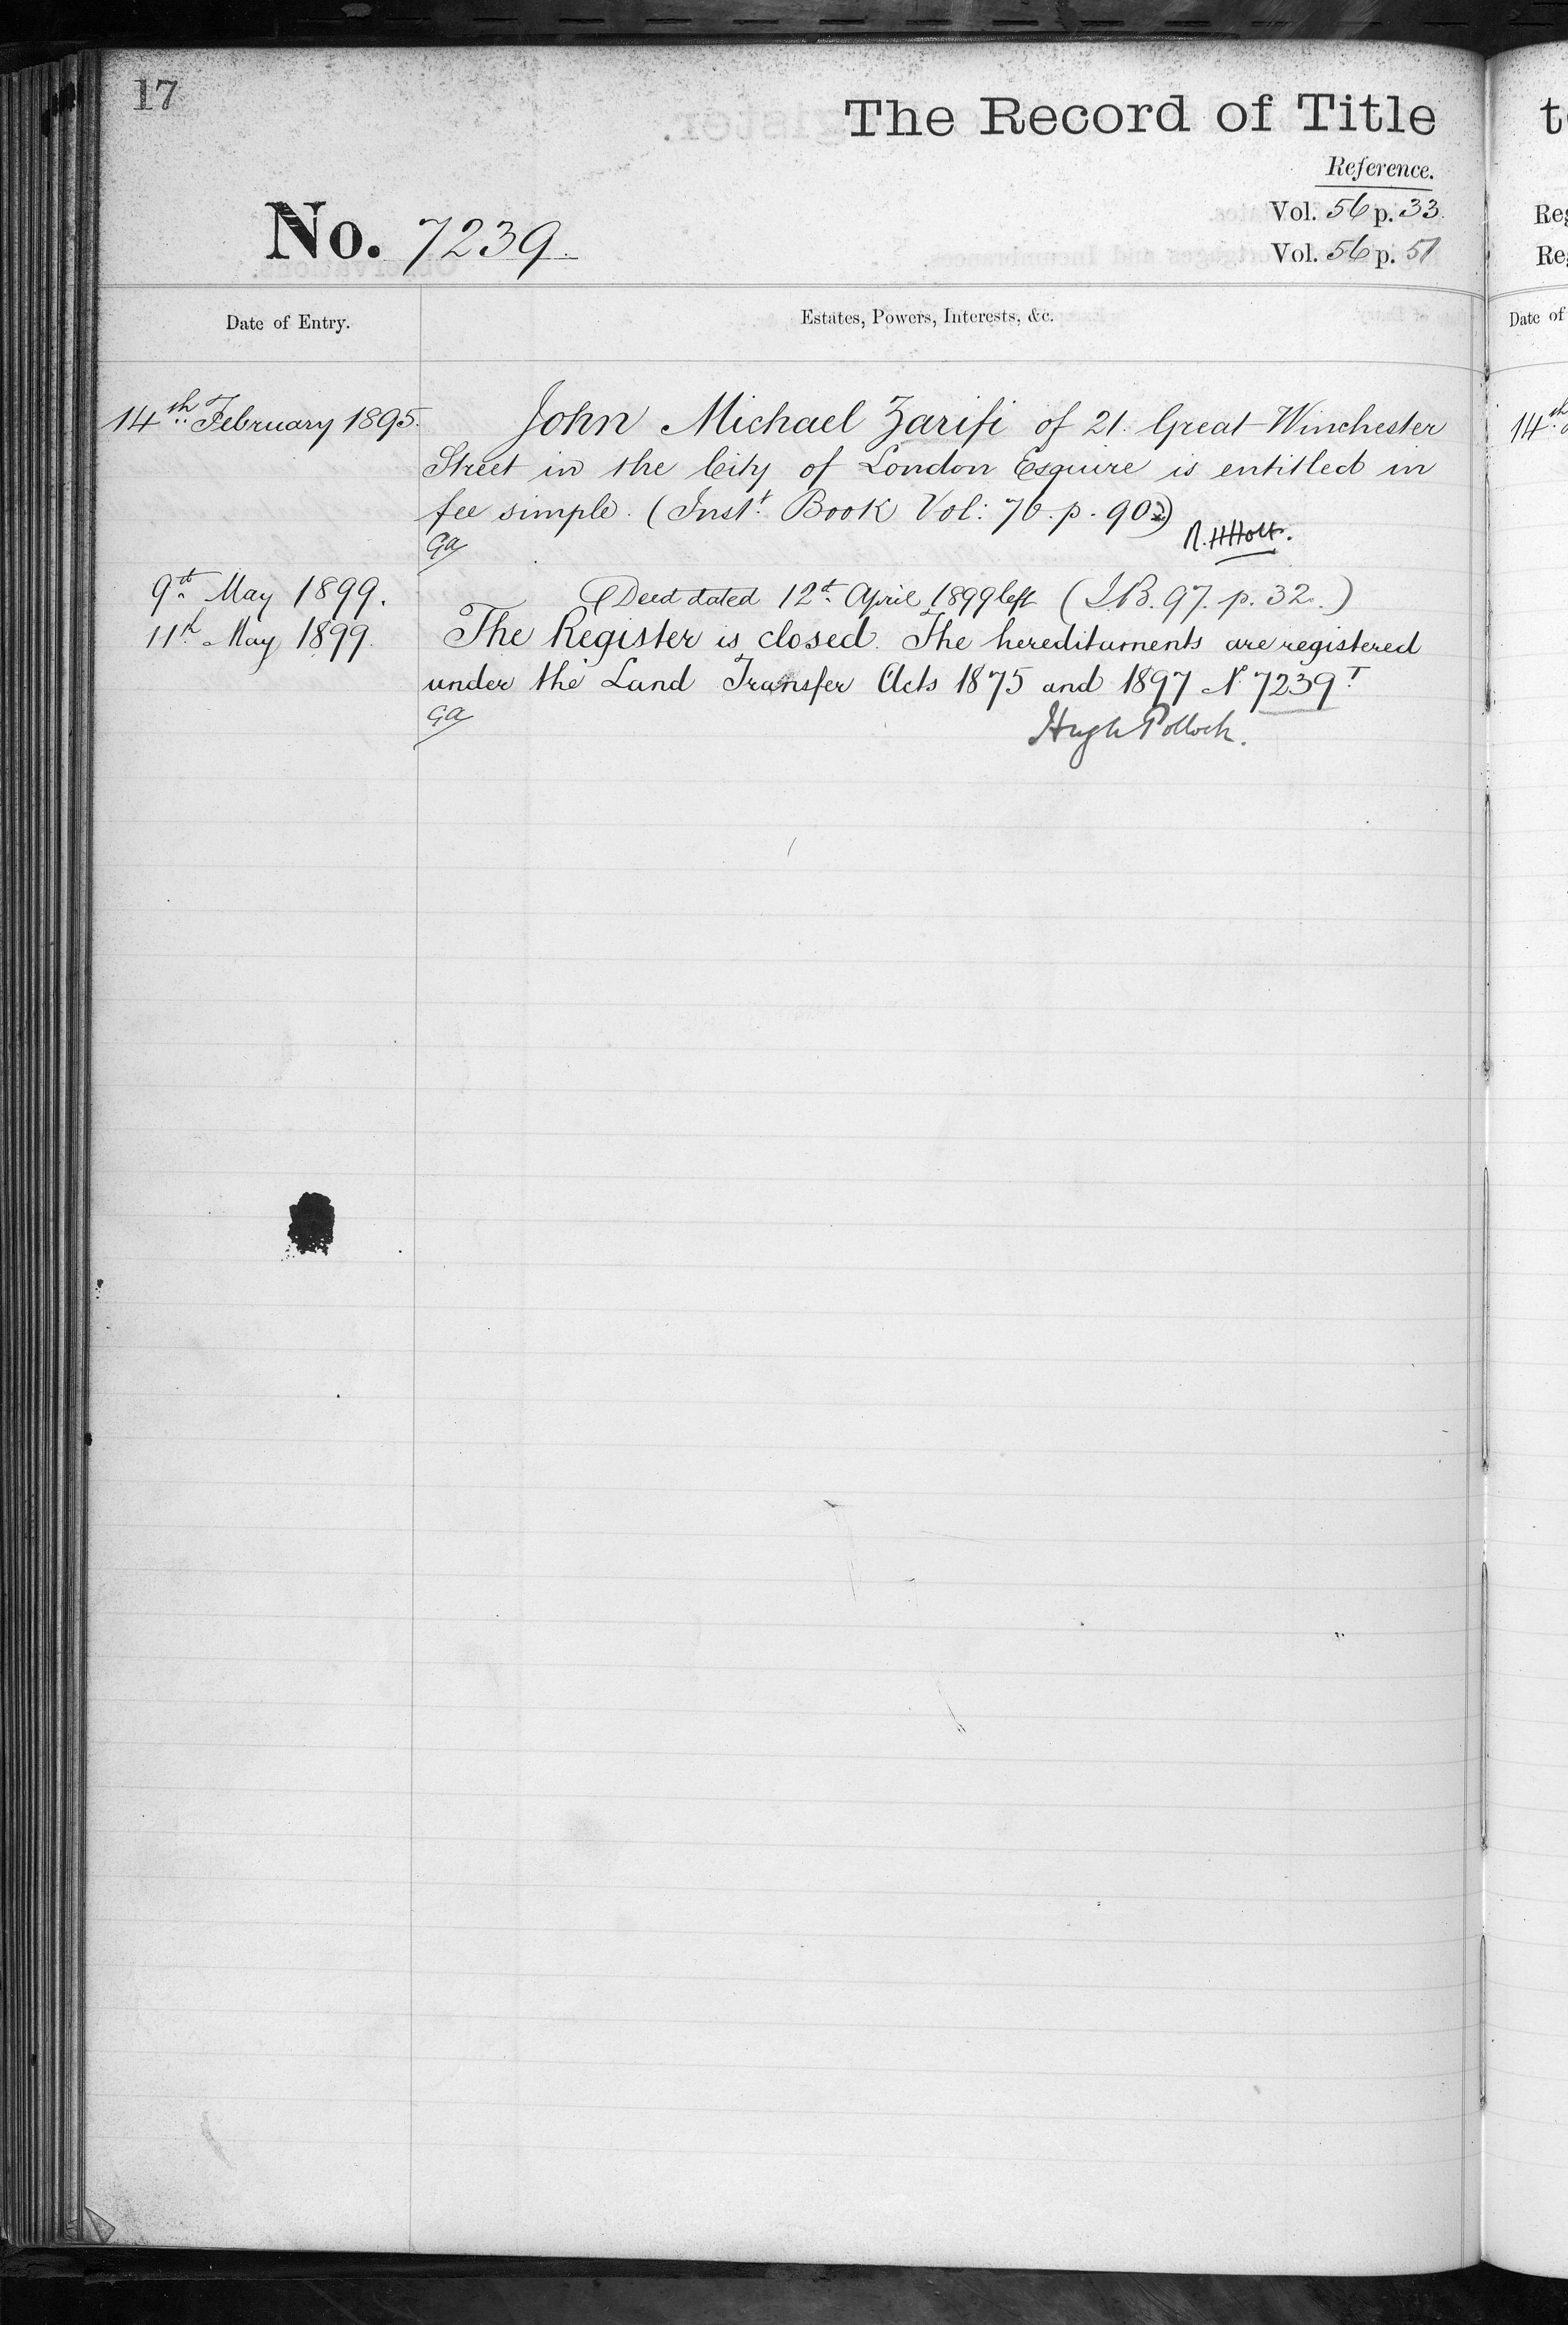 17
The Record of Title
Reference.
Vol. 56 p. 33.
No. 7239.
Vol. 56 p. 51
Date of Entry.
Estates, Powers, Interests, &c.
14th February 1895.
John Michael Zarifi of 21. Great Winchester
Street in the City of London Esquire is entitled in
fee simple. (Inst. Book Vol: 76. p. 90)
GA
R. H Holt.
9th May 1899.
Deed dated 12th April 1899 left (I.B. 97. p. 32.)
11th May 1899.
The Register is closed. The hereditaments are registered
under the Land Transfer Acts 1875 and 1897 No 7239T
GA
Hugh Pollock.
Date of
14th